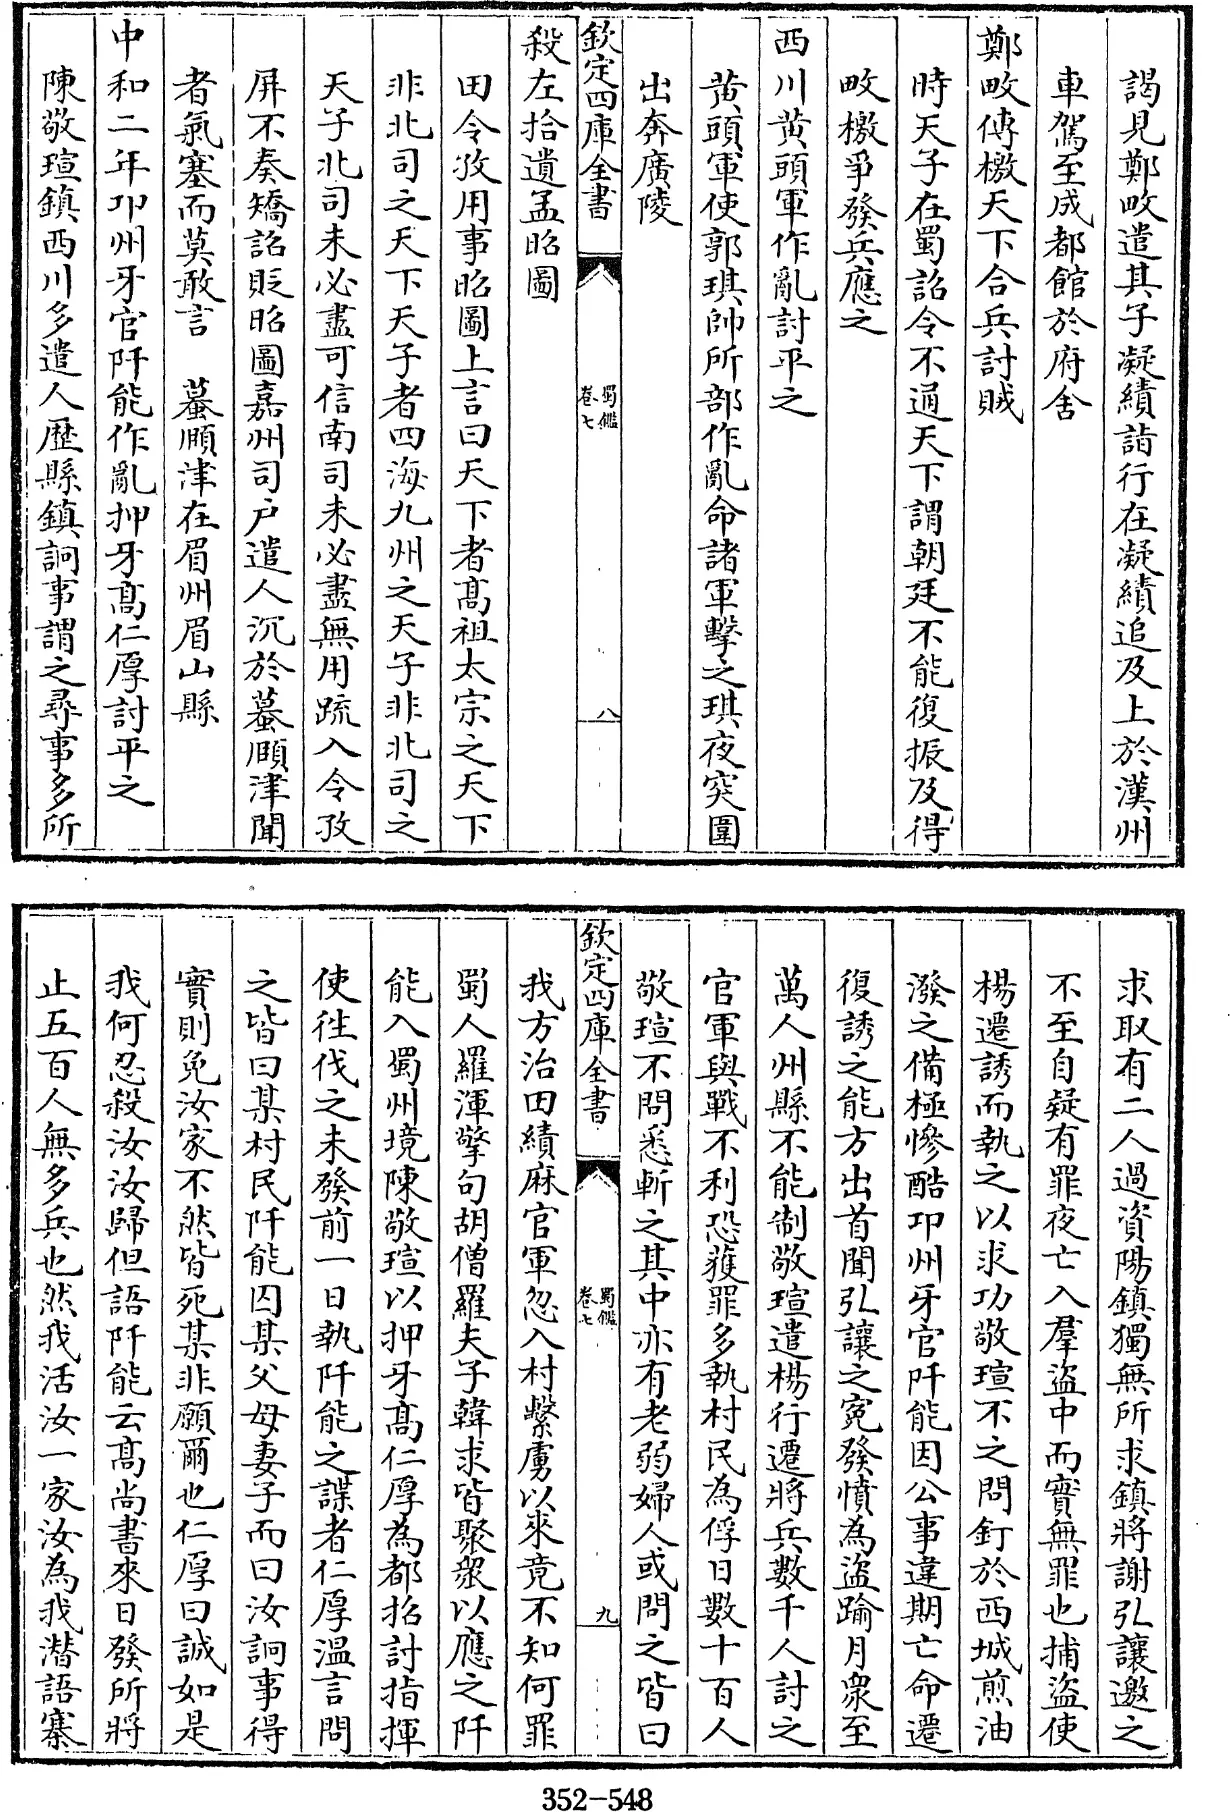 謁見鄭畋遣其子凝績詣行在凝績追及上於漢州
車駕至成都館於府舍
鄭畋傳檄天下合兵討賊
時天子在蜀詔令不通天下謂朝廷不能復振及得
畋檄爭發兵應之
西川黄頭軍作亂討平之
黄頭軍使郭琪帥所部作亂命諸軍擊之琪夜突圍
出奔廣陵
欽定四庫全書
蜀鑑
卷七
八
殺左拾遺孟昭圖
田令孜用事昭圖上言曰天下者髙祖太宗之天下
非北司之天下天子者四海九州之天子非北司之
天子北司未必盡可信南司未必盡無用疏入令孜
屏不奏矯詔貶昭圖嘉州司户遣人沉於蟇頤津聞
者氣塞而莫敢言　蟇頤津在眉州眉山縣
中和二年卭州牙官阡能作亂押牙髙仁厚討平之
陳敬瑄鎮西川多遣人歴縣鎮詗事謂之尋事多所
求取有二人過資陽鎮獨無所求鎮將謝弘讓邀之
不至自疑有罪夜亡入羣盗中而實無罪也捕盗使
楊遷誘而執之以求功敬瑄不之問釘於西城煎油
潑之備極慘酷卭州牙官阡能因公事違期亡命遷
復誘之能方出首聞弘讓之寃發憤為盗踰月衆至
萬人州縣不能制敬瑄遣楊行遷將兵數千人討之
官軍與戰不利恐獲罪多執村民為俘日數十百人
敬瑄不問悉斬之其中亦有老弱婦人或問之皆曰
欽定四庫全書
蜀鑑
卷七
九
我方治田績麻官軍忽入村繫虜以來竟不知何罪
蜀人羅渾擎句胡僧羅夫子韓求皆聚衆以應之阡
能入蜀州境陳敬瑄以押牙髙仁厚為都招討指揮
使往伐之未發前一日執阡能之諜者仁厚温言問
之皆曰某村民阡能囚某父母妻子而曰汝詗事得
實則免汝家不然皆死某非願爾也仁厚曰誠如是
我何忍殺汝汝歸但語阡能云髙尚書來日發所將
止五百人無多兵也然我活汝一家汝為我潛語寨
352-548